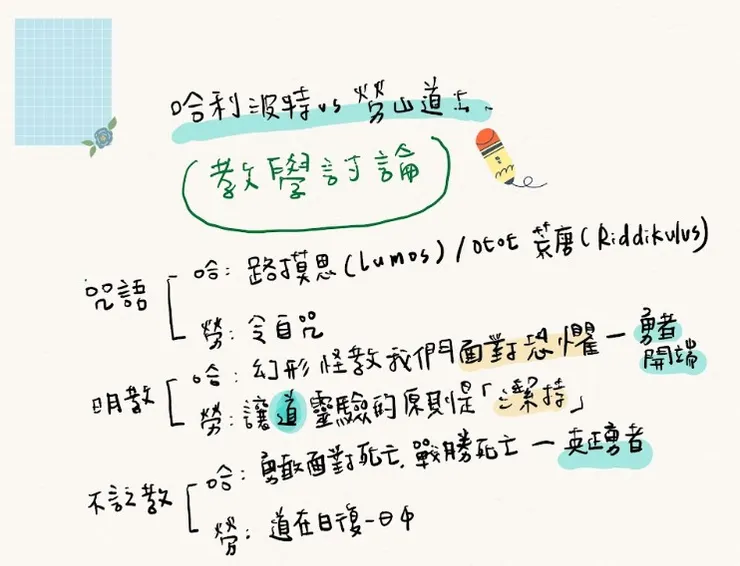 哈利波特vs 勞山道士.
(教學討論)
咒語
哈: 路摸思(Lumos)/叱叱 荒唐(Riddikulus)
勞: 令自咒
明教
哈: 幻形怪教我們面對恐懼 — 勇者
開端
勞: 讓道靈驗的原則是「潔持」
不言之教
哈: 勇敢面對死亡, 戰勝死亡 — 真正勇者
勞: 道在日復一日中